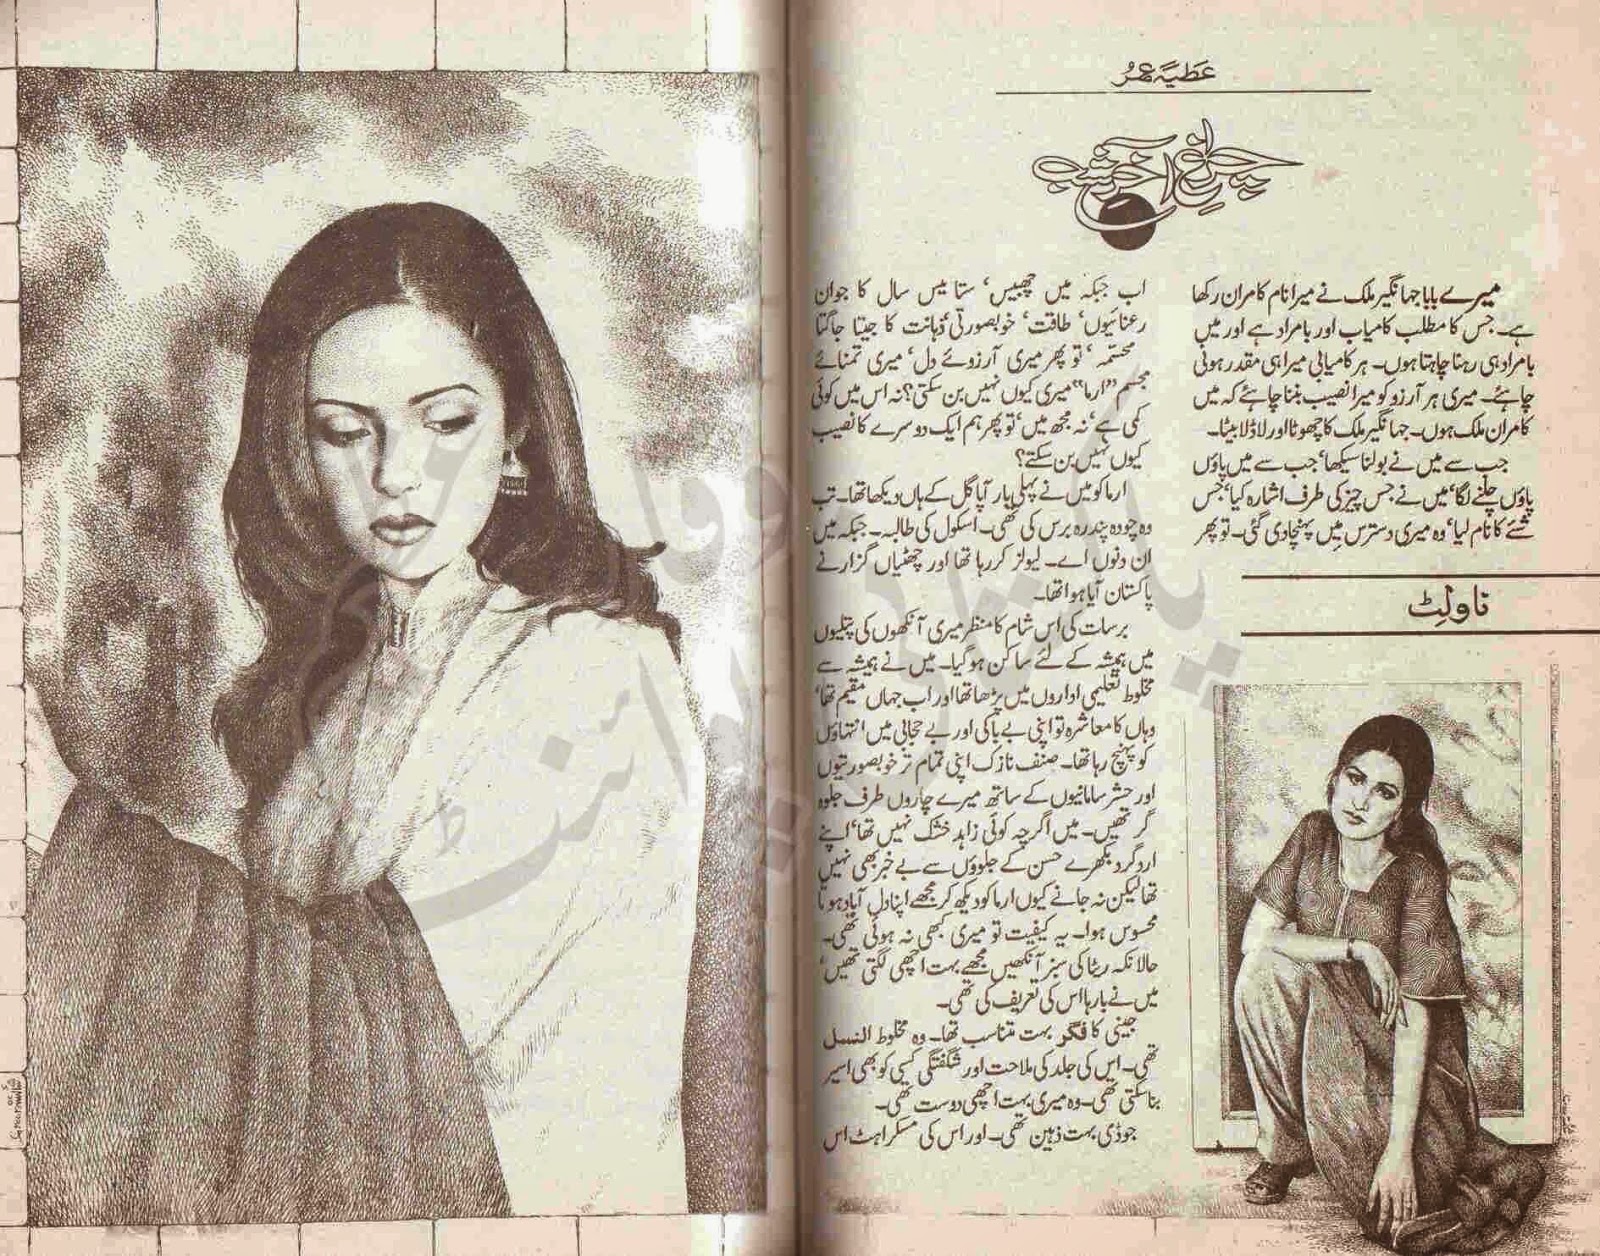 عطیہ عمر
چراغ آخر شب
میرے بابا جہانگیر ملک نے میرا نام کامران رکھا
ہے۔ جس کا مطلب کامیاب اور بامراد ہے اور میں
بامراد ہی رہنا چاہتا ہوں۔ ہر کامیابی میرا ہی مقدر ہونی
چاہئے۔ میری ہر آرزو کو میرا نصیب بننا چاہئے کہ میں
کامران ملک ہوں۔ جہانگیر ملک کا چھوٹا اور لاڈلا بیٹا۔
جب سے میں نے بولنا سیکھا، جب سے میں پاؤں
پاؤں چلنے لگا، میں نے جس چیز کی طرف اشارہ کیا، جس
شئے کا نام لیا، وہ میری دسترس میں پہنچا دی گئی۔ تو پھر
ناولٹ
اب جبکہ میں چھبیس، ستائیس سال کا جوان
رعنائیوں، طاقت، خوبصورتی، ذہانت کا جیتا جاگتا
مجسمہ، تو پھر میری آرزوئے دل، میری تمنائے
مجسم ”ارما“ میری کیوں نہیں بن سکتی؟ نہ اس میں کوئی
کمی ہے، نہ مجھ میں، تو پھر ہم ایک دوسرے کا نصیب
کیوں نہیں بن سکتے؟
ارما کو میں نے پہلی بار آپا گل کے ہاں دیکھا تھا۔ تب
وہ چودہ پندرہ برس کی تھی۔ اسکول کی طالبہ۔ جبکہ میں
ان دنوں اے۔ لیولز کر رہا تھا اور چھٹیاں گزارنے
پاکستان آیا ہوا تھا۔
برسات کی اس شام کا منظر میری آنکھوں کی پتلیوں
میں ہمیشہ کے لئے ساکن ہو گیا۔ میں نے ہمیشہ سے
مخلوط تعلیمی اداروں میں پڑھا تھا اور اب جہاں مقیم تھا،
وہاں کا معاشرہ تو اپنی بے باکی اور بے حجابی میں انتہاؤں
کو پہنچ رہا تھا۔ صنف نازک اپنی تمام تر خوبصورتیوں
اور حشر سامانیوں کے ساتھ میرے چاروں طرف جلوہ
گر تھیں۔ میں اگرچہ کوئی زاہد خشک نہیں تھا، اپنے
ارد گرد بکھرے حسن کے جلوؤں سے بے خبر بھی نہیں
تھا لیکن نہ جانے کیوں ارما کو دیکھ کر مجھے اپنا دل آباد ہوتا
محسوس ہوا۔ یہ کیفیت تو میری کبھی نہ ہوئی تھی۔
حالانکہ ریٹا کی سبز آنکھیں مجھے بہت اچھی لگتی تھیں،
میں نے بارہا اس کی تعریف کی تھی۔
جینی کا فگر بہت متناسب تھا۔ وہ مخلوط النسل
تھی۔ اس کی جلد کی ملاحت اور شگفتگی کسی کو بھی اسیر
بنا سکتی تھی۔ وہ میری بہت اچھی دوست تھی۔
جوڈی بہت ذہین تھی۔ اور اس کی مسکراہٹ اس